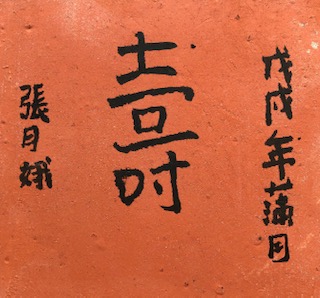 戊戌年蒲月
壽
張月娥